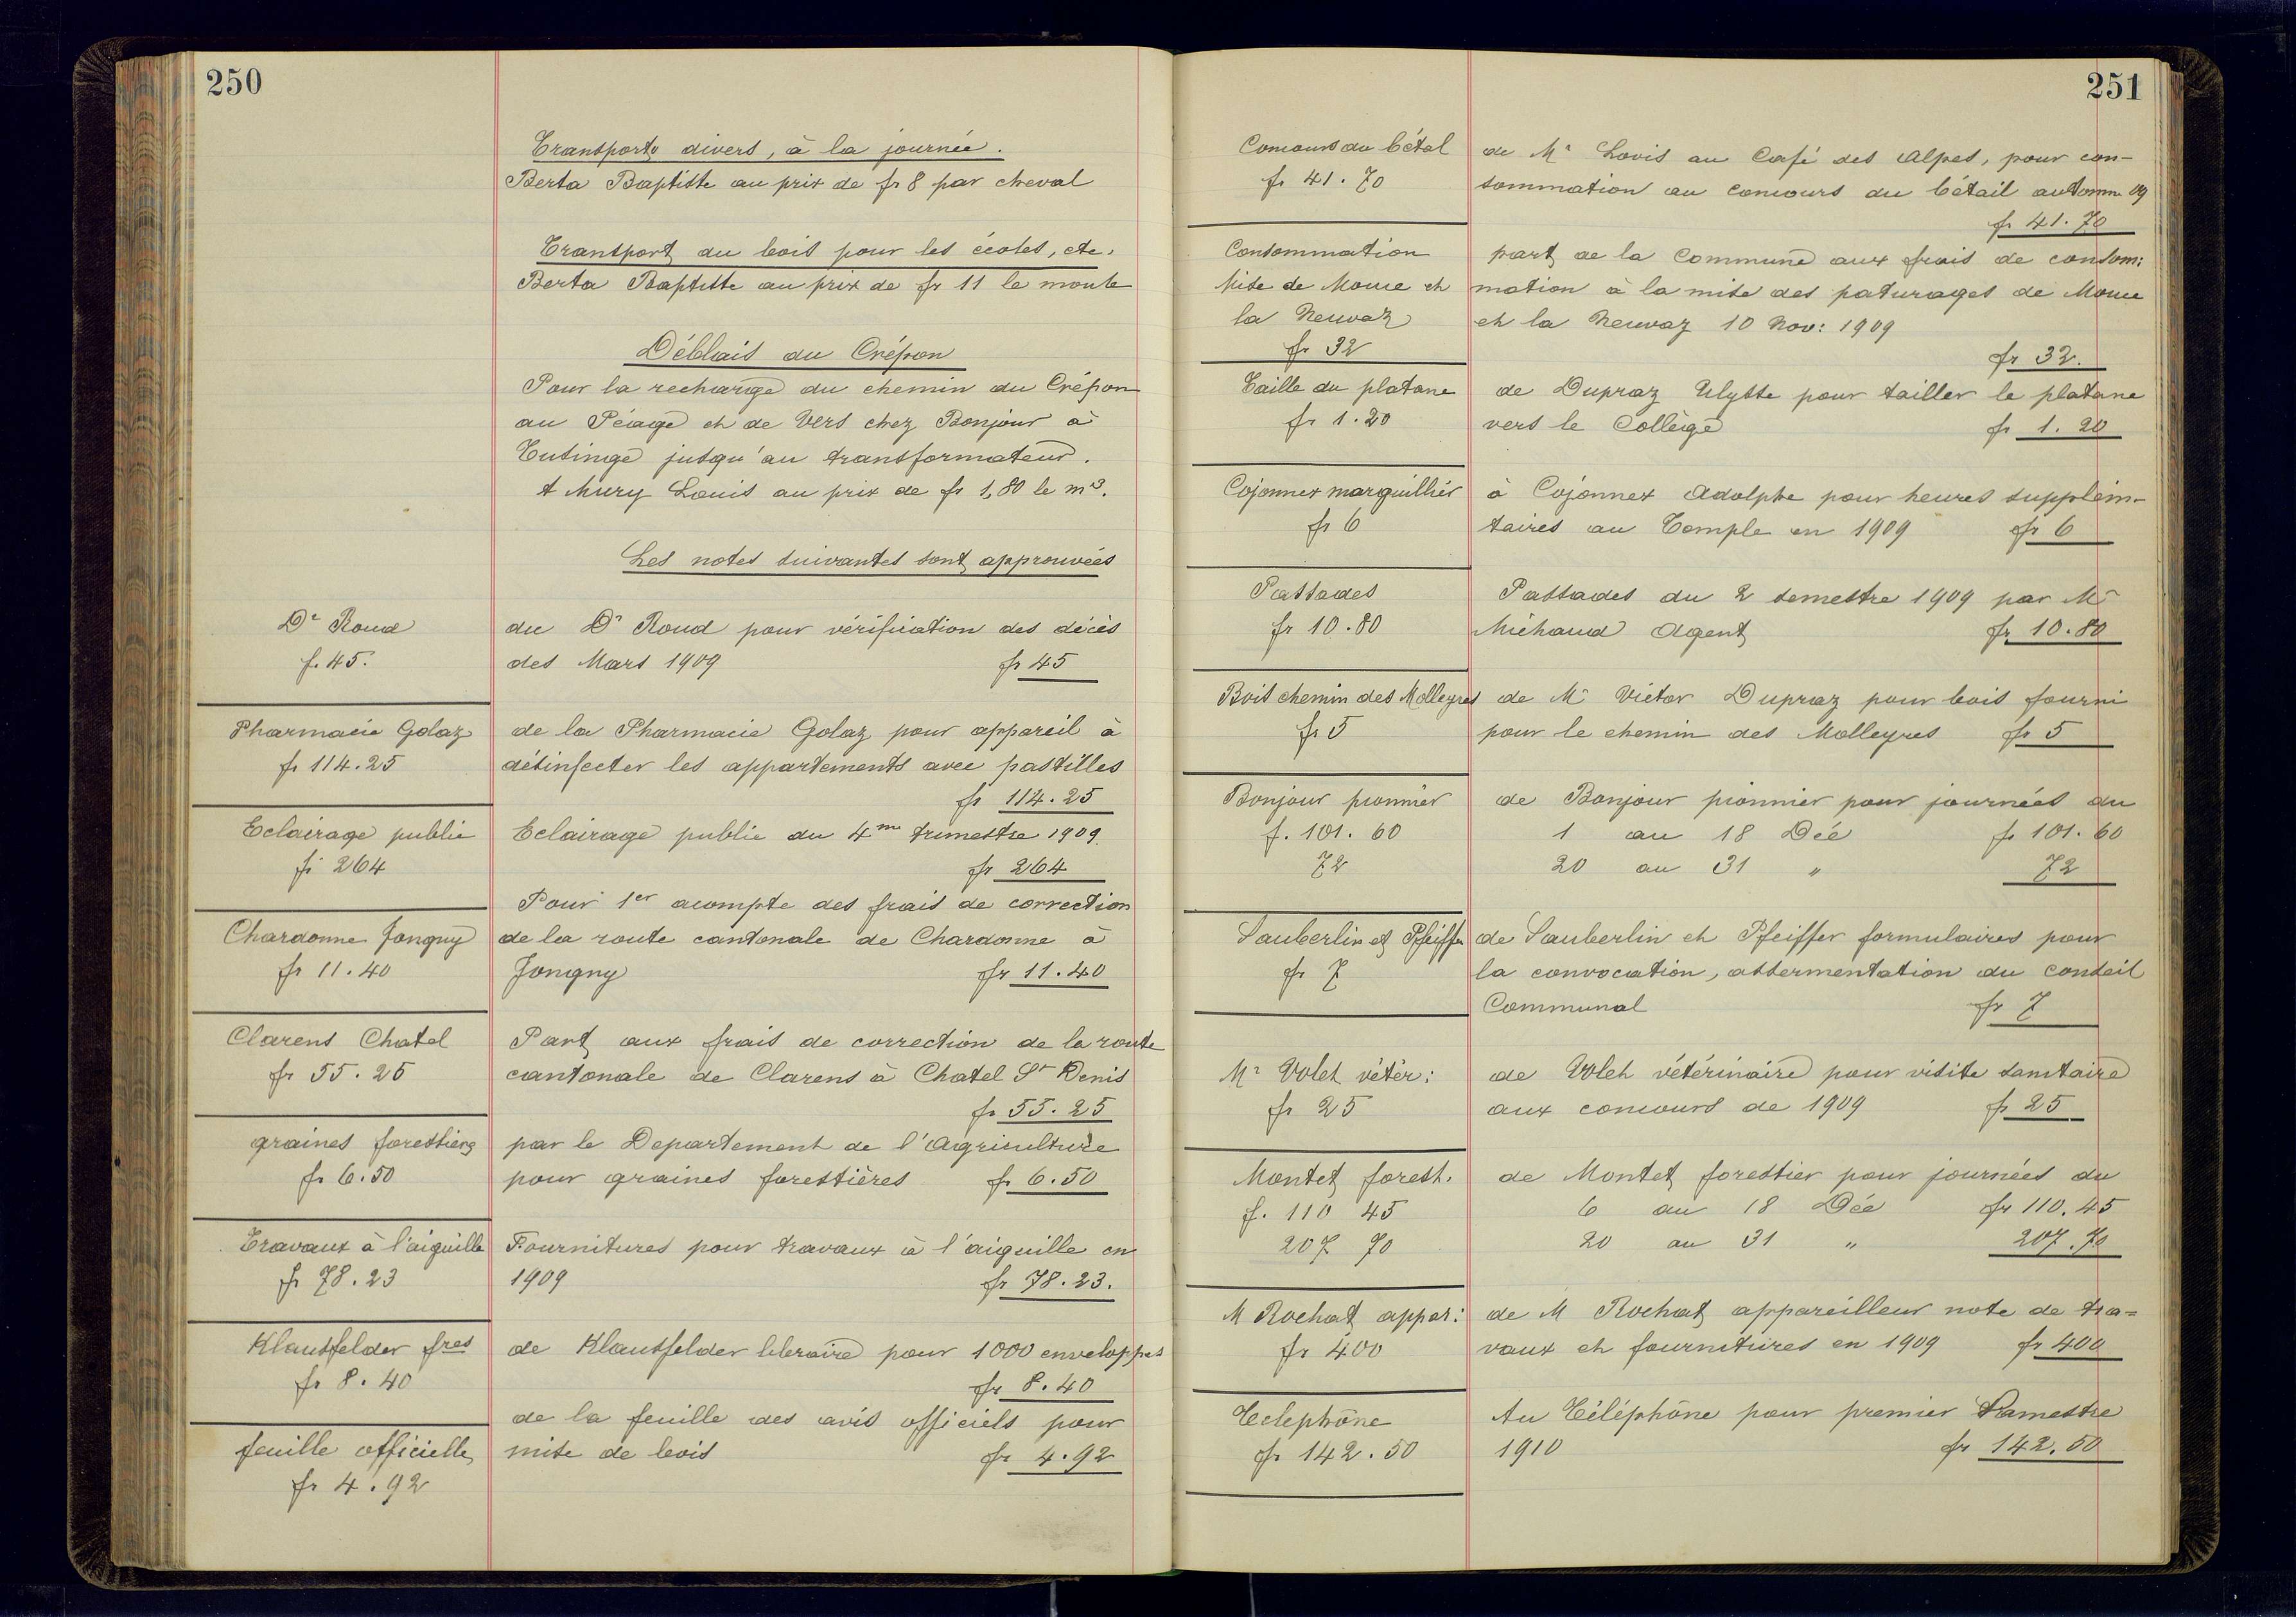 250
Transports divers, à la journée.
Berta Baptiste au prix de fr 8 par cheval
Transport du bois pour les écoles, etc.
Berta Baptiste au prix de fr 11 le moule
Déblais du Crépon
Pour la recharge du chemin du Crépon
au Péage et de Vers chez Bonjour à
Tusinge jusqu'au transformateur.
A Mury Louis au prix de fr 1,80 le m3.
Les notes suivantes sont approuvées
Dr Roud
f. 45.
du Dr Roud pour vérification des décès
des Mars 1909 fr 45
Pharmacie Golaz
fr 114.25
de la Pharmacie Golaz pour appareil à
désinfecter les appartements avec pastilles
fr 114.25
Eclairage public
fr 264
Eclairage public du 4me trimestre 1909.
fr 264
Chardonne Jongny
fr 11.40
Pour 1er acompte des frais de correction
de la route cantonale de Chardonne à
Jongny fr 11.40
Clarens Chatel
fr 55.25
Part aux frais de correction de la route
cantonale de Clarens à Chatel St Denis
fr 55.25
graines forestières
fr 6.50
par le Departement de l'Agriculture
pour graines forestières fr 6.50
Travaux à l'aiguille
fr 78.23
Fournitures pour travaux à l'aiguille en
1909 fr 78.23.
Klausfelder fres
fr 8.40
de Klausfelder libraire pour 1000 enveloppes
fr 8.40
feuille officielle
fr 4.92
de la feuille des avis officiels pour
mise de bois fr 4.92
251
Concours du bétal
fr 41.70
de Mr Lovis au Café des Alpes, pour con-
sommation au concours du bétail automn. 09
fr 41.70
Consommation
Mise de Mouce et
la Neuvaz
fr 32
part de la Commune aux frais de consom:
mation à la mise des paturages de Mouce
et la Neuvaz 10 Nov: 1909
fr 32.
Taille du platane
fr 1.20
de Dupraz Ulysse pour tailler le platane
vers le Collège fr 1.20
Cojonnex marguillier
fr 6
à Cojonnex Adolphe pour heures supplém-
taires au Temple en 1909 fr 6
Passades
fr 10.80
Passades du 2 semestre 1909 par Mr
Michaud Agent fr 10.80
Bois chemin des Molleyres
fr 5
de Mr Victor Dupraz pour bois fourni
pour le chemin des Molleyres fr 5
Bonjour pionnier
f. 101.60
72
de Bonjour pionnier pour journées du
1 au 18 Déc fr 101.60
20 au 31 " 72
Sauberlin et Pfeiffer
fr 7
de Sauberlin et Pfeiffer formulaires pour
la convocation, assermentation du conseil
Communal fr 7
Mr Volet vétér:
fr 25
de Volet vétérinaire pour visite sanitaire
aux concours de 1909 fr 25
Montet forest.
f. 110 45
207 70
de Montet forestier pour journées du
6 au 18 Déc fr 110.45
20 au 31 " 207.70
M Rochat appar:
fr 400
de M Rochat appareilleur note de tra=
vaux et fournitures en 1909 fr 400
Telephône
fr 142.50
Au Téléphône pour premier tramestre
1910 fr 142.50